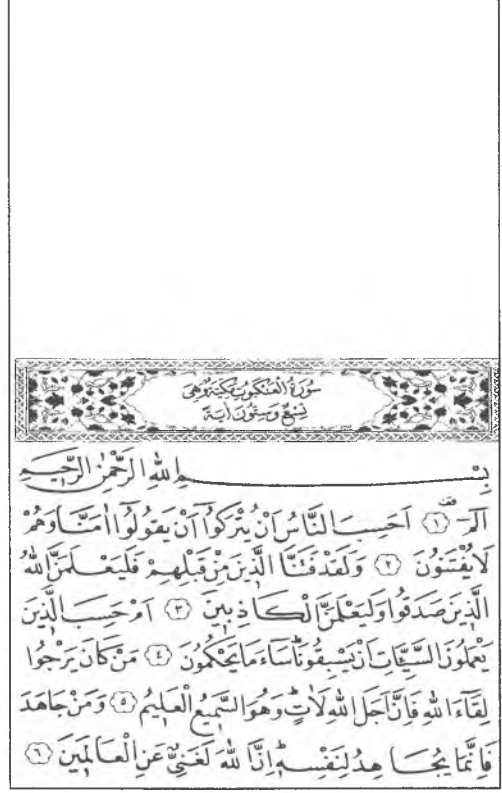 سُورَةُ الْعَنْكَبُوتِ مَكِّيَّةٌ وَهِيَ
تِسْعٌ وَسِتُّونَ اٰيَةً
بِسْمِ اللّٰهِ الرَّحْمٰنِ الرَّحِيمِ
الٓمٓ ﴿١﴾ اَحَسِبَ النَّاسُ اَنْ يُتْرَكُوٓا اَنْ يَقُولُوٓا اٰمَنَّا وَهُمْ
لَا يُفْتَنُونَ ﴿٢﴾ وَلَقَدْ فَتَنَّا الَّذِينَ مِنْ قَبْلِهِمْ فَلَيَعْلَمَنَّ اللّٰهُ
الَّذِينَ صَدَقُوا وَلَيَعْلَمَنَّ الْكَاذِبِينَ ﴿٣﴾ اَمْ حَسِبَ الَّذِينَ
يَعْمَلُونَ السَّيِّـَٔاتِ اَنْ يَسْبِقُونَاۜ سَٓاءَ مَا يَحْكُمُونَ ﴿٤﴾ مَنْ كَانَ يَرْجُوا
لِقَٓاءَ اللّٰهِ فَاِنَّ اَجَلَ اللّٰهِ لَاٰتٍۜ وَهُوَ السَّمِيعُ الْعَلِيمُ ﴿٥﴾ وَمَنْ جَاهَدَ
فَاِنَّمَا يُجَاهِدُ لِنَفْسِهٖۜ اِنَّ اللّٰهَ لَغَنِيٌّ عَنِ الْعَالَمِينَ ﴿٦﴾